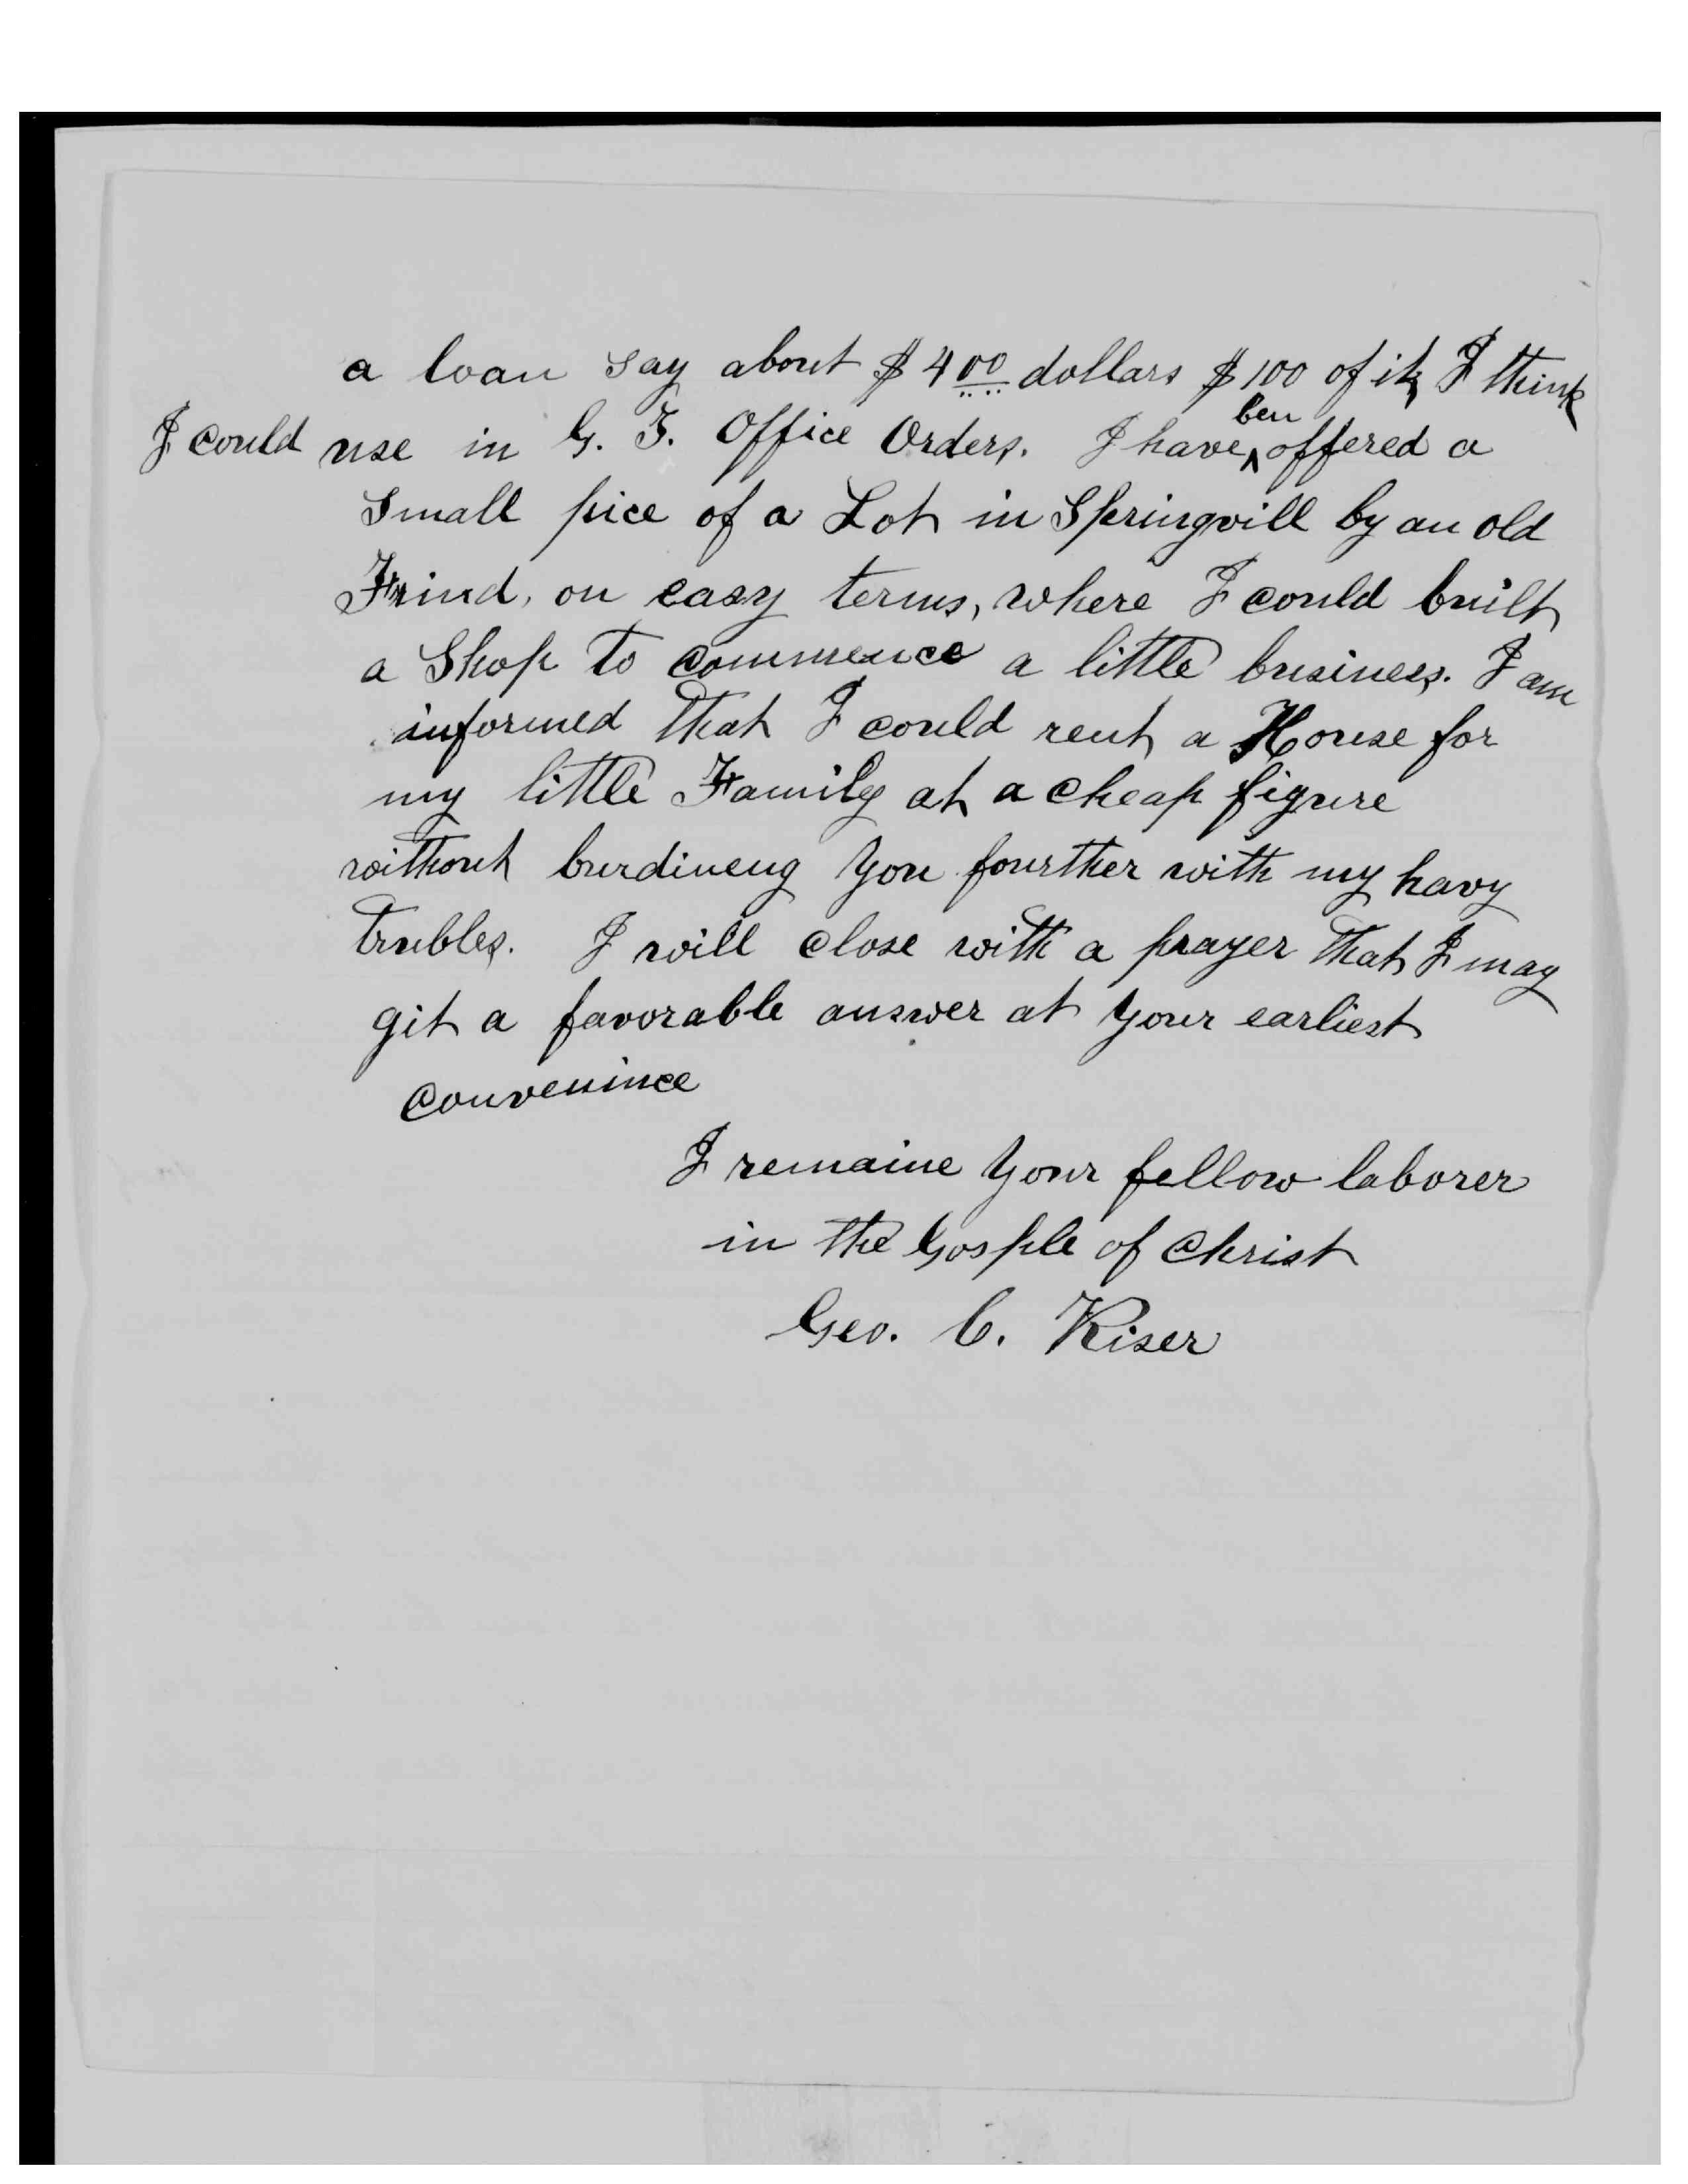 a loan say about $400 dollars $100 of it, I think
I could use in G. T. Office Orders. I have ben offered a
Small pice of a Lot in Springvill by an old
Frind, on easy terms, where I could built
a Shop to commence a little business. I am
informed that I could rent a House for
my little Family at a cheap figure
without burdineng you fourther with my havy
trubles. I will close with a prayer that I may
git a favorable answer at your earliest
convenince
I remaine your fellow laborer
in the Gosple of Christ
Geo. C. Kiser